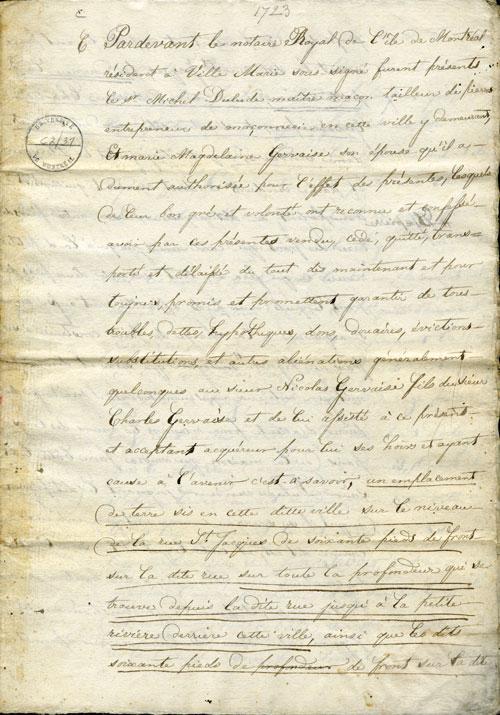 1723
Pardevant le notaire Royal de l'ile de Montréal
résident à Ville Marie sous signé furent présents
le sr. Michel Dulude maître maçon tailleur de pierre
entrepreneur de maçonneries en cette ville y demeurant,
Et marie Magdelaine Gervaise son épouse qu'il a
dument authorisée pour l'effet des présentes, lesquels
de leur bon gré et volonté ont reconnu et confessé
avoir par ces présentes vendu, cédé, quitté, trans=
porté et délaissé du tout dès maintenant et pour
toujours, promis et promettent garantir de tous
troubles, dettes, hypothèques, dons, douaires, évictions
substitutions, et autres aliénations généralement
quelconques au sieur Nicolas Gervaise fils du sieur
Charles Gervaise et de lui assisté à ce présent
et acceptant acquéreur pour lui ses hoirs et ayant
cause à l'avenir c'est a savoir, un emplacement
de terre sis en cette ditte ville sur le niveau
de la rue St Jacques de soixante pieds de front
sur la dite rue sur toute la profondeur qui se
trouve depuis la dite rue jusqu'à la petite
rivière derrière cette ville, ainsi que les dits
soixante pieds de profondeur de front sur la dite